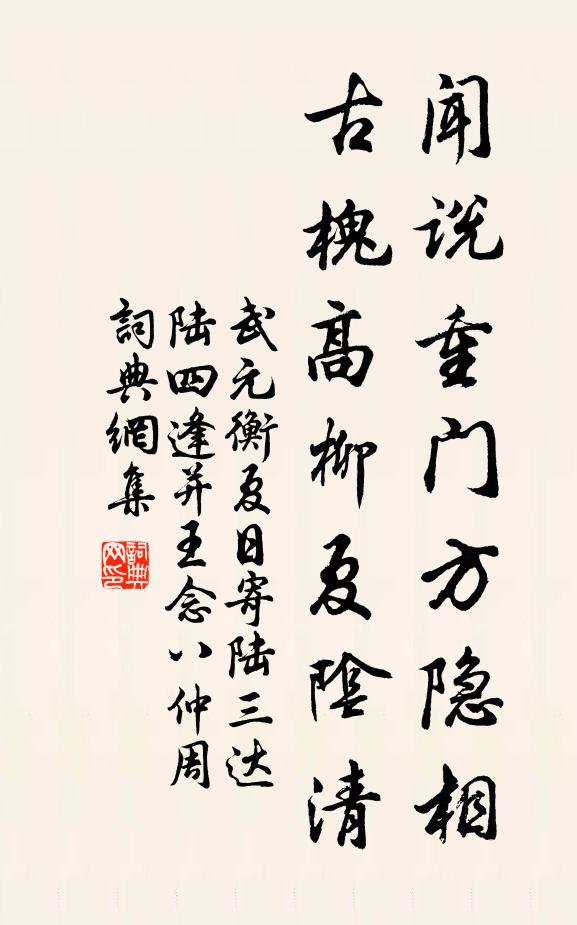 闻说重门方隐相
古槐高柳夏阴清
武元衡夏日寄陆三达
陆四逢并王念八仲周
詞典網集
詞典
网印